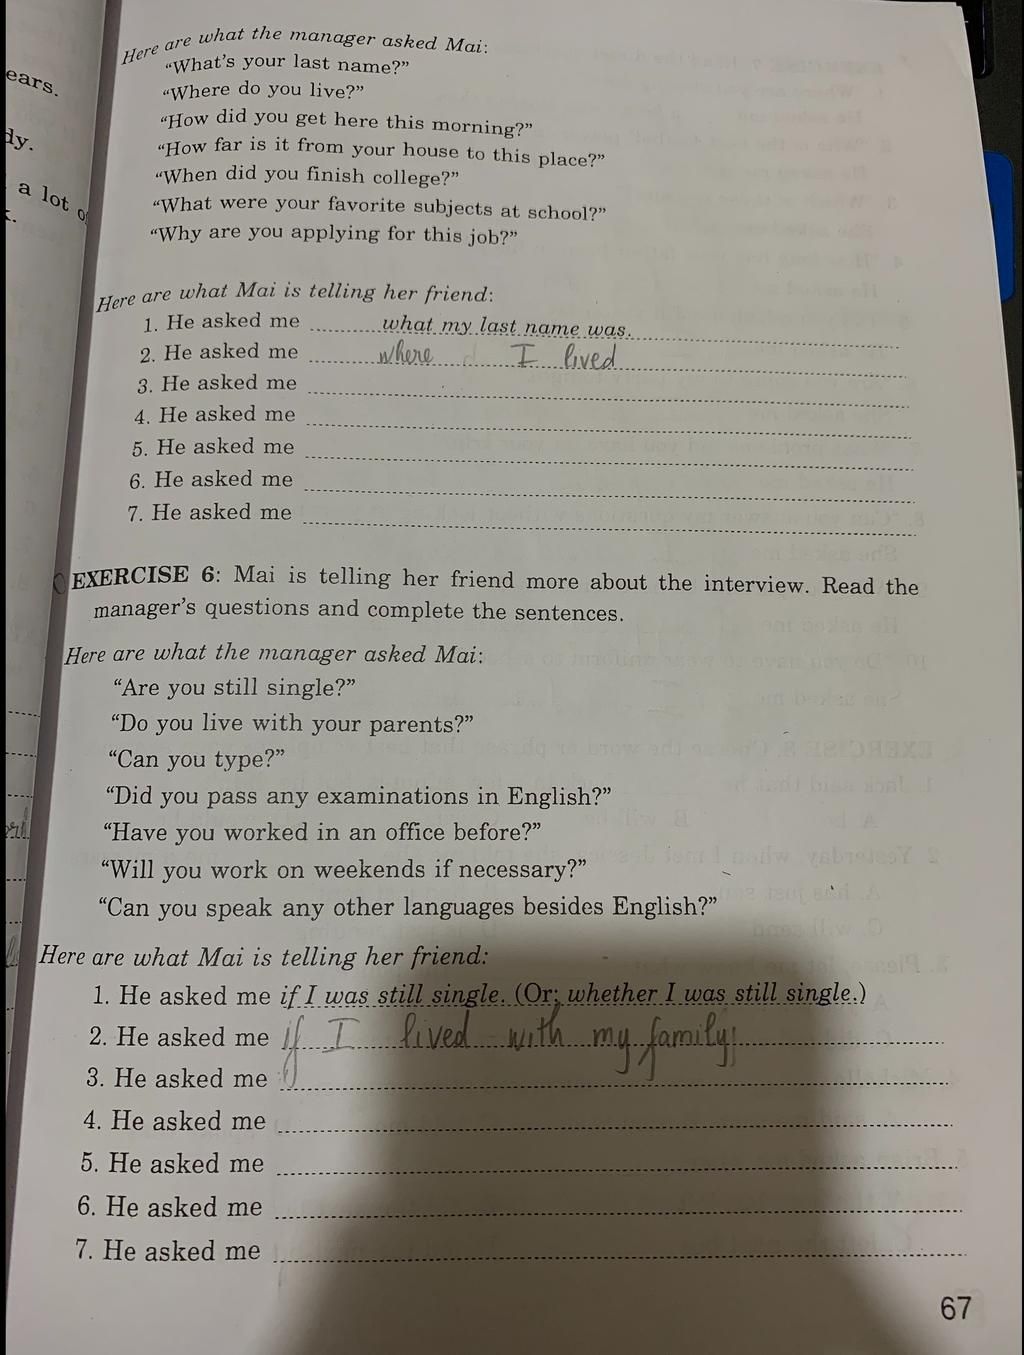 ears.
dy.
a lot
Here are what the manager asked Mai:
"What's your last name?"
"Where do you live?"
"How did you get here this morning?"
"How far is it from your house to this place?"
"When did you finish college?"
"What were your favorite subjects at school?"
"Why are you applying for this job?"
Here are what Mai is telling her friend:
1. He asked me ..........what my last name was.
2. He asked me .......... where I lived
3. He asked me
4. He asked me
5. He asked me
6. He asked me
7. He asked me
EXERCISE 6: Mai is telling her friend more about the interview. Read the
manager's questions and complete the sentences.
Here are what the manager asked Mai:
"Are you still single?"
"Do you live with your parents?"
"Can you type?"
"Did you pass any examinations in English?"
"Have you worked in an office before?"
"Will you work on weekends if necessary?"
"Can you speak any other languages besides English?"
Here are what Mai is telling her friend:
1. He asked me if I was still single. (Or: whether I was still single.)
2. He asked me if I lived with my family
3. He asked me
4. He asked me
5. He asked me
6. He asked me
7. He asked me
67